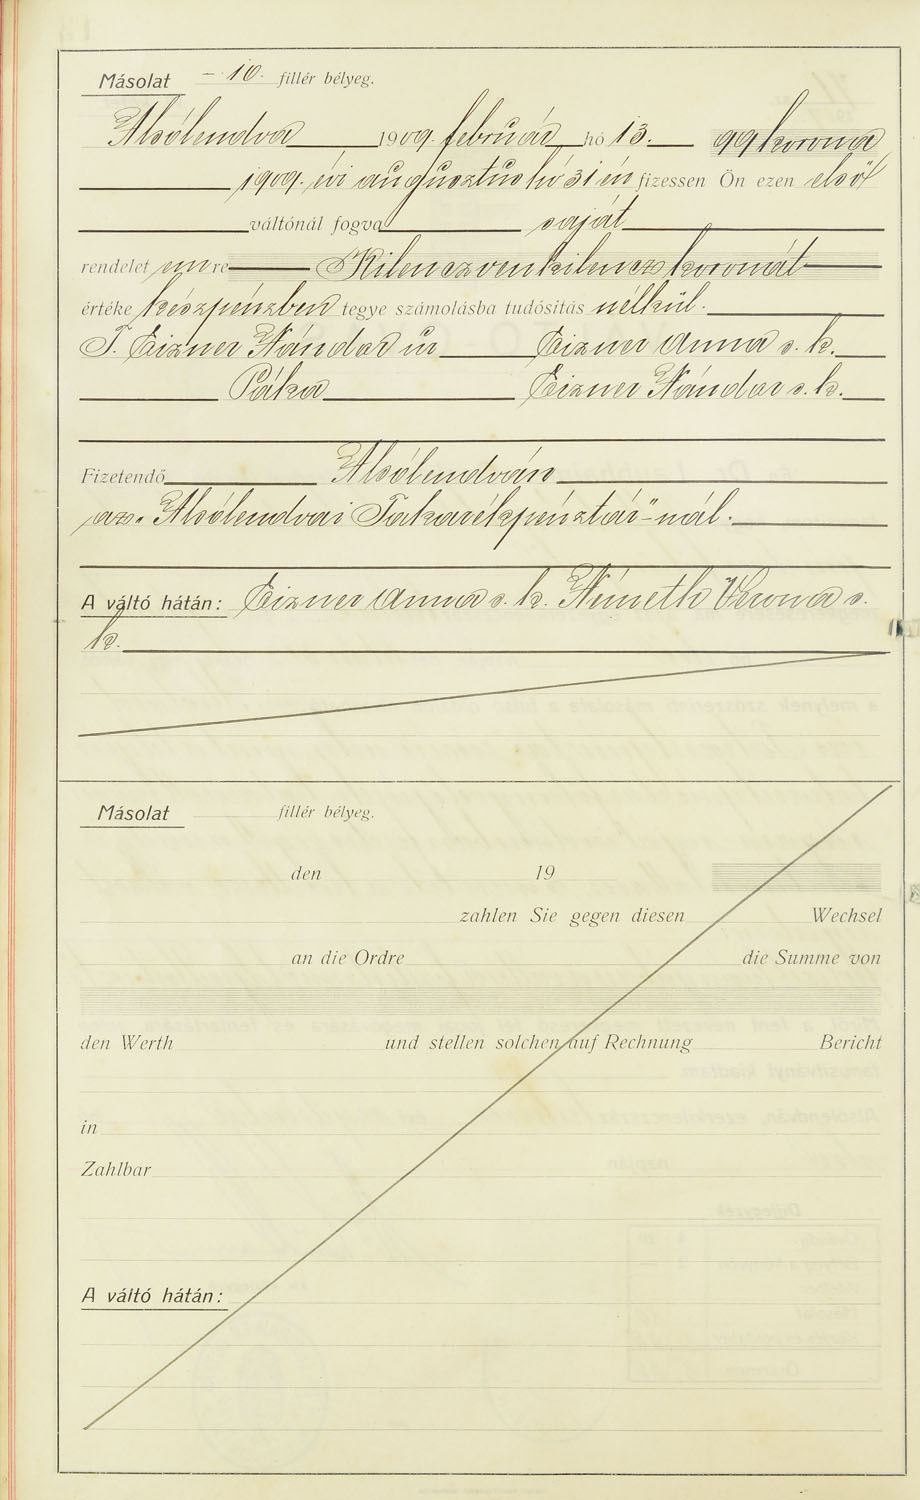 Másolat – 10. fillér bélyeg.
Alsólendva 1909. február hó 13. 99 korona
1909. évi augusztus hó 31 én fizessen Ön ezen első
váltónál fogva saját
rendelet emre Kilenczvenkilencz koronát
értéke készpénzben tegye számolásba tudósítás nélkül.
T. Eizner Nándor úr Eizner Anna s. k.
Páka Eizner Nándor s. k.
Fizetendő Alsólendván
az „Alsólendvai Takarékpénztár"-nál.
A váltó hátán: Eizner Anna s. k. Németh Verona s.
k.
Másolat fillér bélyeg.
den 19
zahlen Sie gegen diesen Wechsel
an die Ordre die Summe von
den Werth und stellen solchen auf Rechnung Bericht
in
Zahlbar
A váltó hátán: